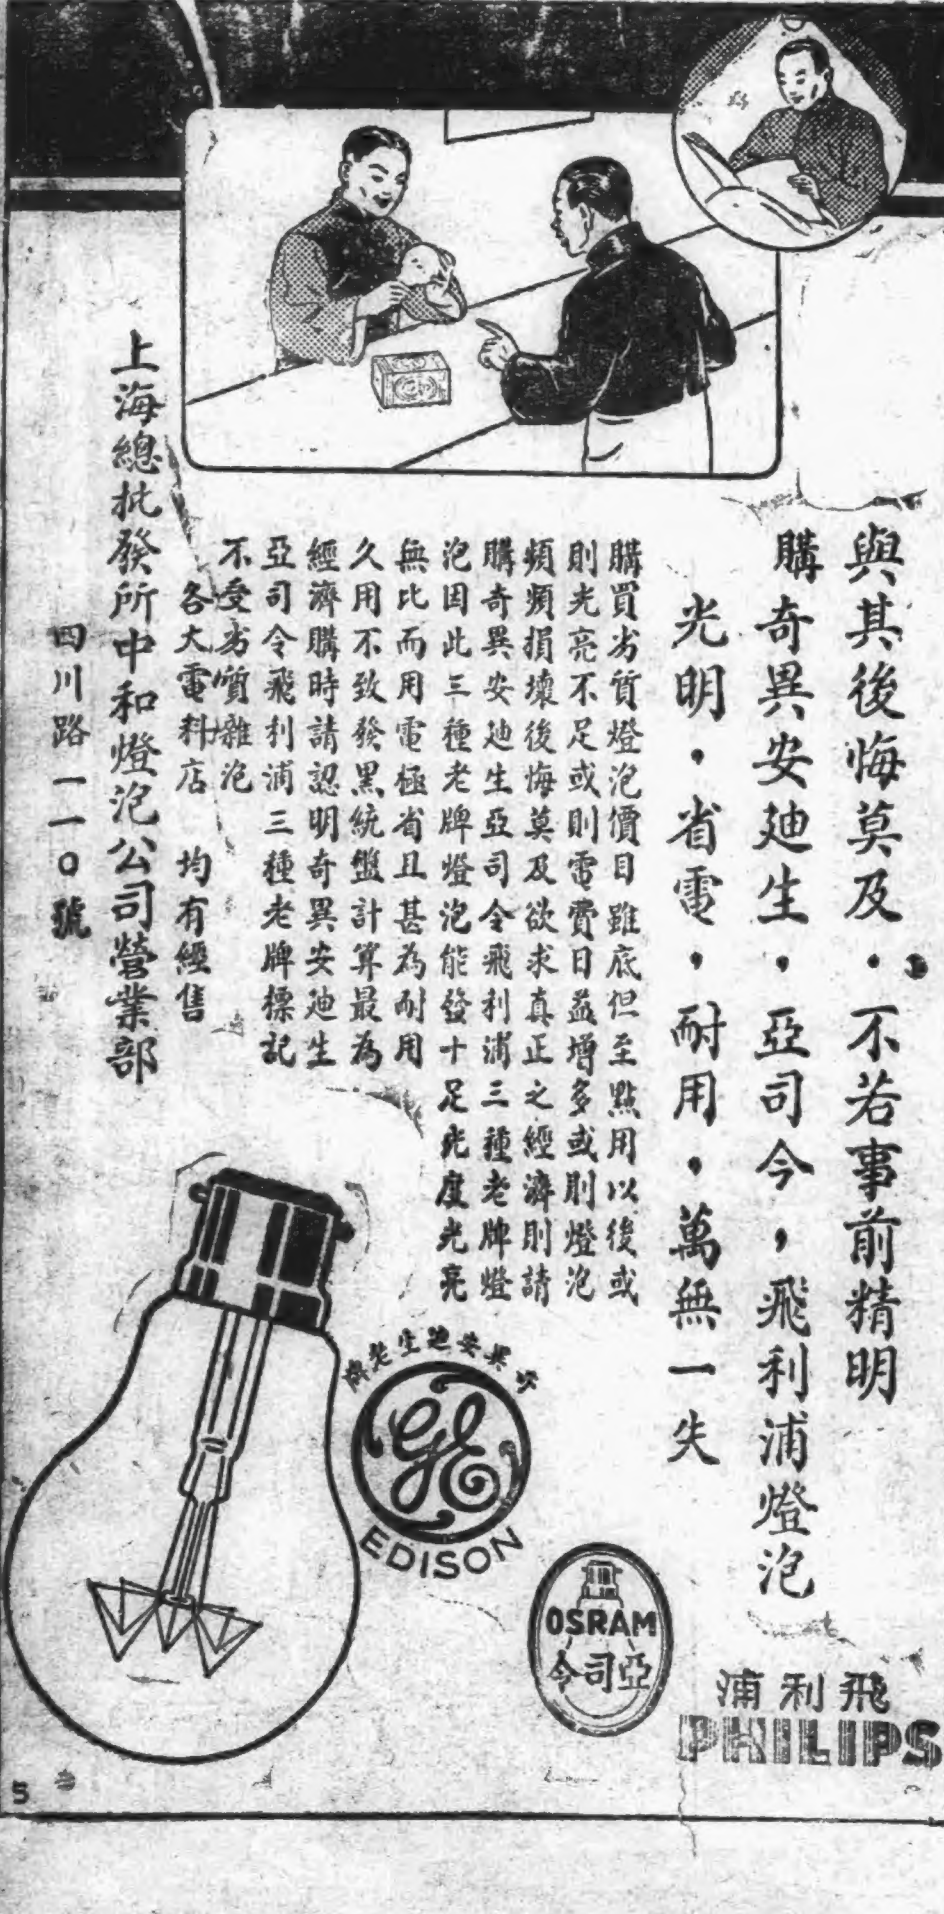 與其後悔莫及．不若事前精明
購奇異安廸生，亞司令，飛利浦燈泡
光明，省電，耐用，萬無一失
購買劣質燈泡價目雖底但至點用以後或
則光亮不足或則電費日益增多或則燈泡
頻頻損壞後悔莫及欲求真正之經濟則請
購奇異安廸生亞司令飛利浦三種老牌燈
泡因此三種老牌燈泡能發十足光度光亮
無比而用電極省且甚為耐用
久用不致發黑統盤計算最為
經濟購時請認明奇異安廸生
亞司令飛利浦三種老牌標記
不受劣質雜泡
各大電料店　均有經售
上海總批發所中和燈泡公司營業部
四川路一一〇號
奇異安廸生老牌
GE
EDISON
OSRAM
亞司令
飛利浦
PHILIPS
5